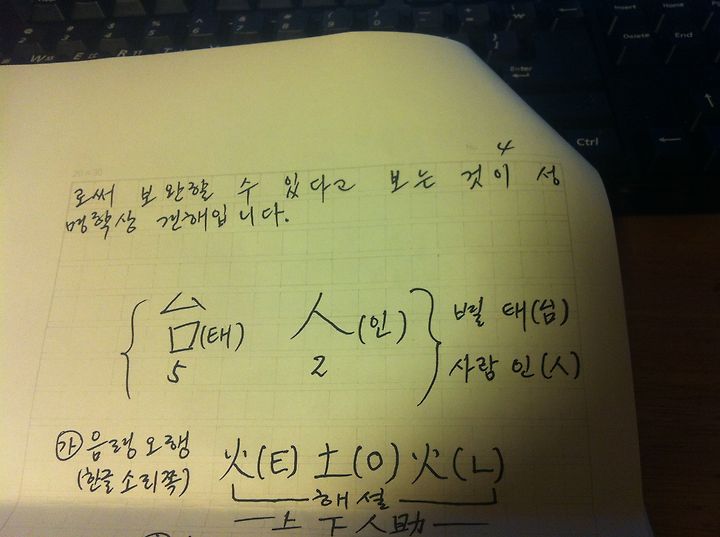 4
로써 보완할 수 있다고 보는 것이 성
명학상 견해입니다.
台(태) 人(인) 별 태(님)
5 2 사람 인(人)
㉮ 음령오행 火(ㅌ) 土(ㅇ) 火(ㄴ)
(한글소리쪽) 해설
上下人助